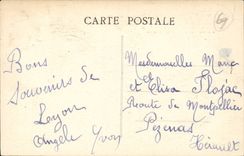 CARTE POSTALE
69
Bons
Souvenirs de
Lozon
Angèle Yvon
Mesdemoiselles
et Elisa
Route de Montpellier
Pézenas
Hérault